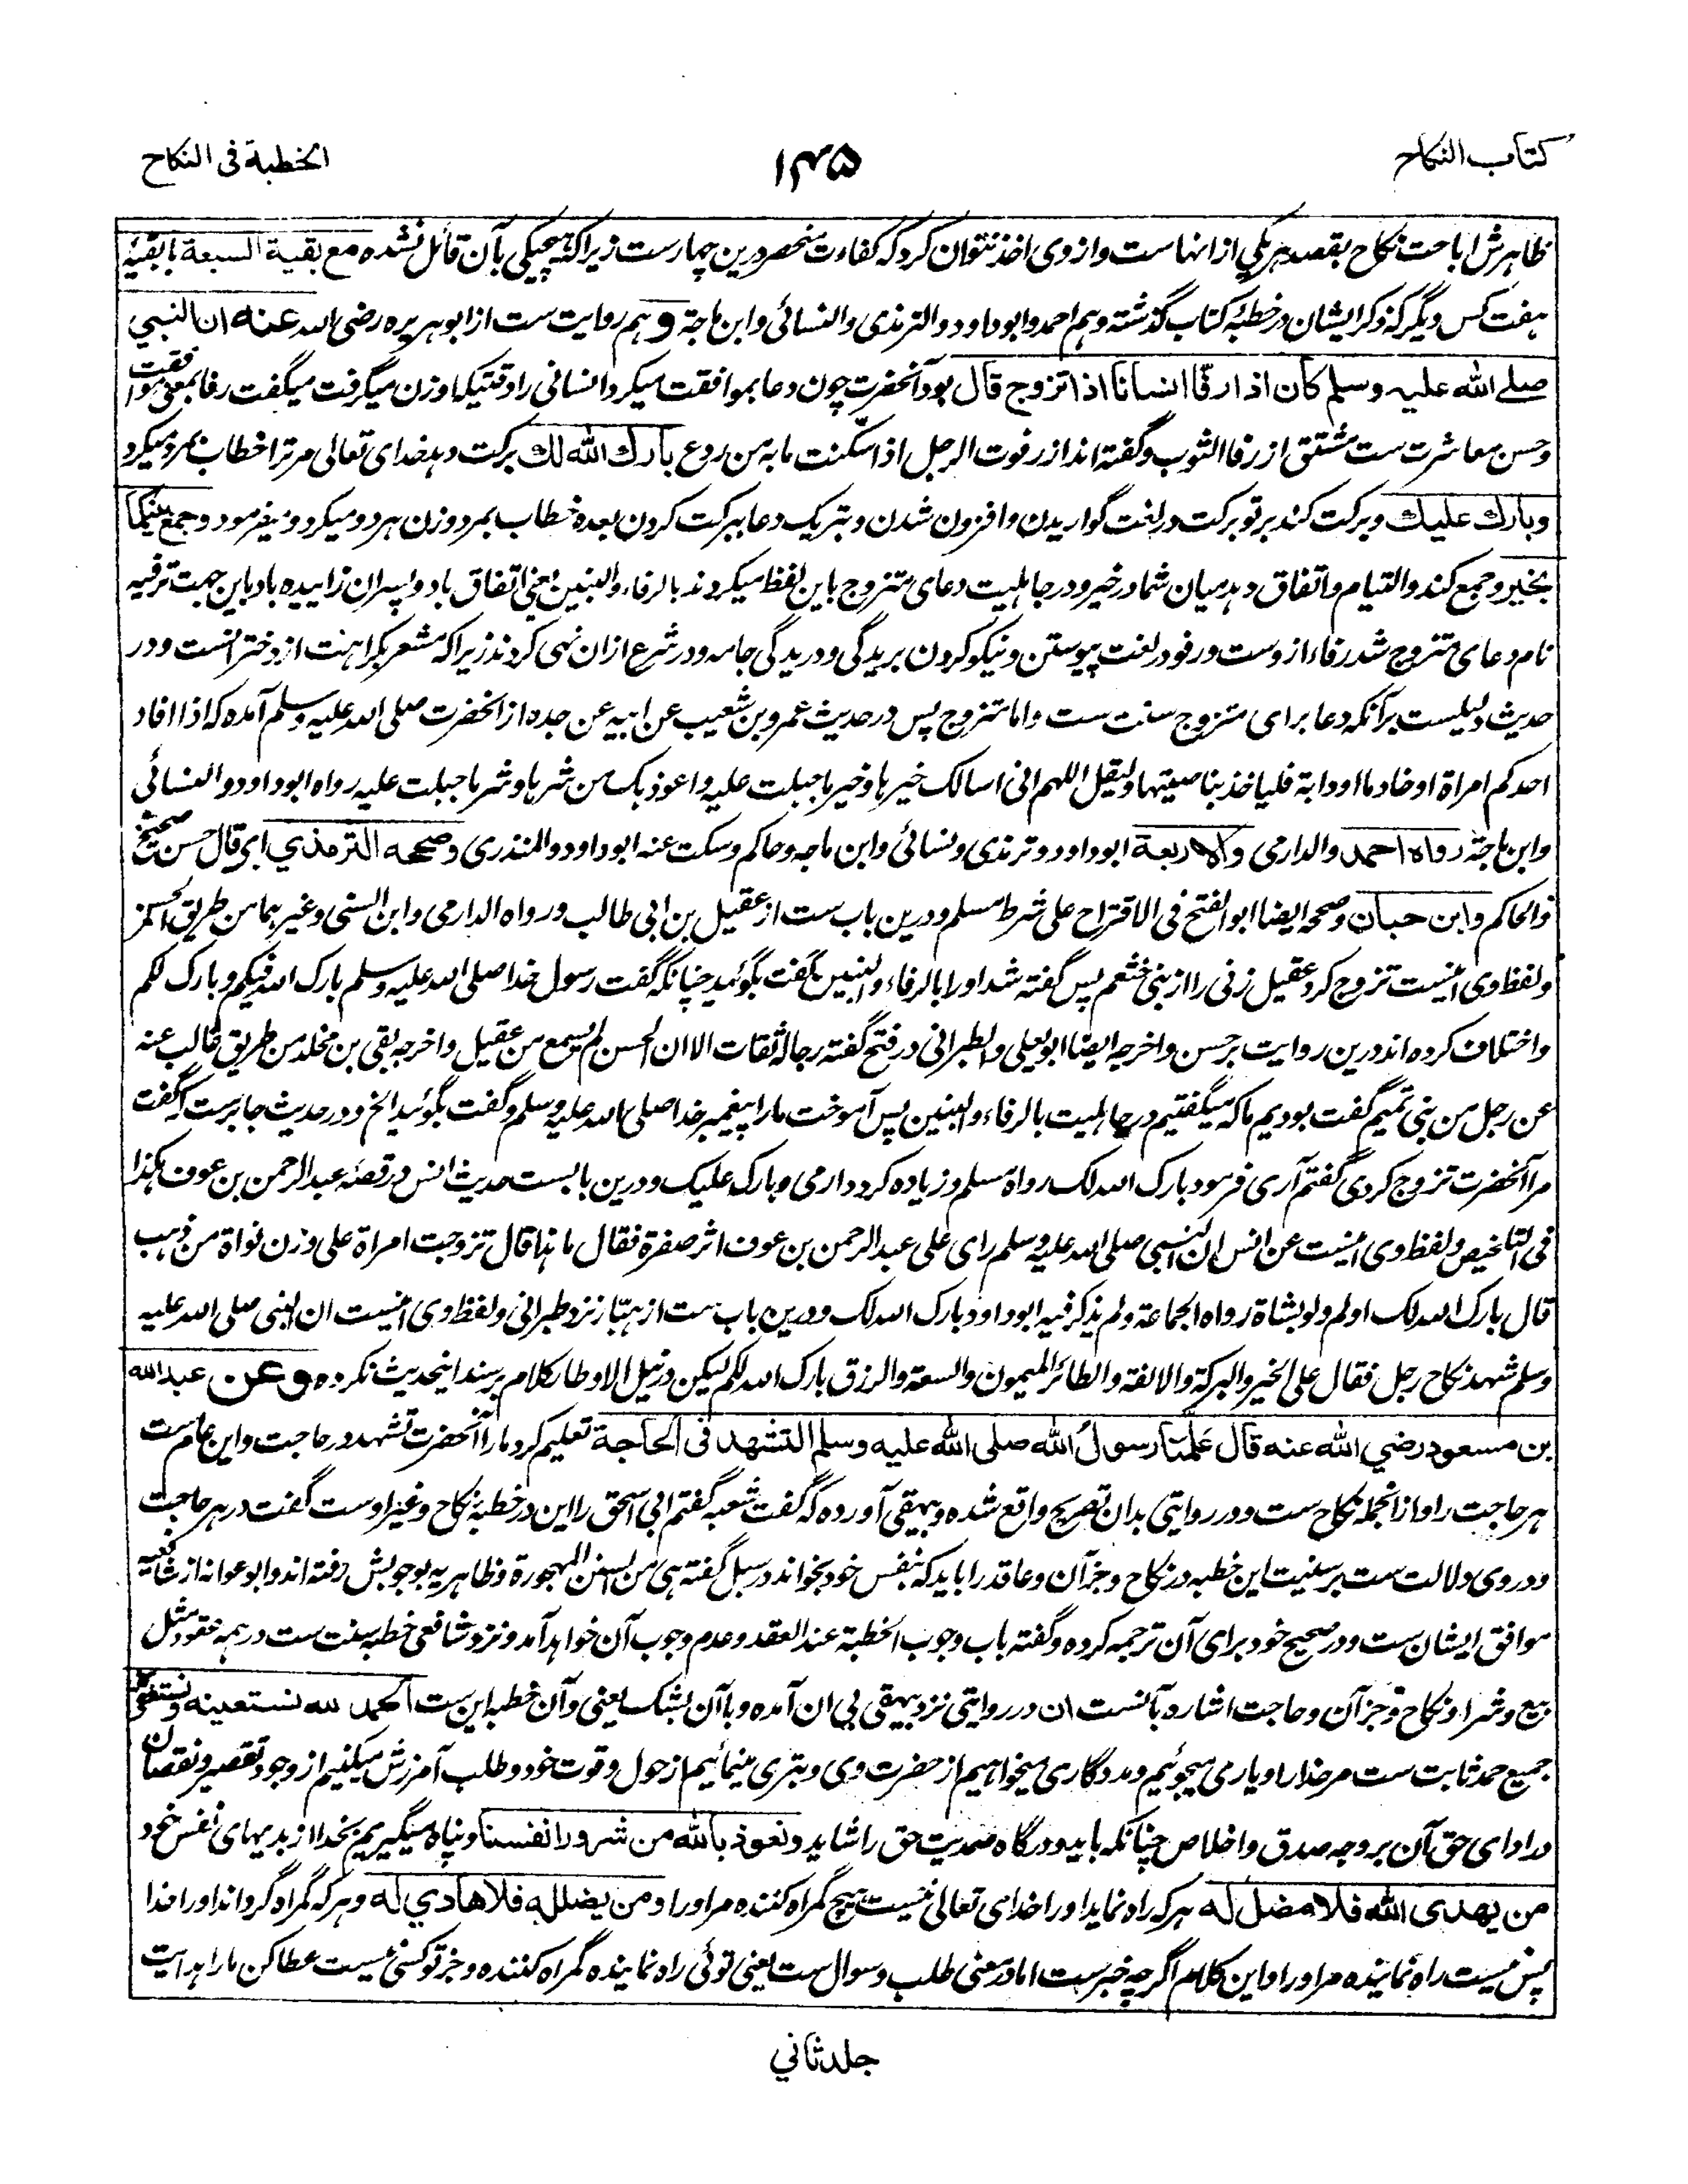 كتاب النكاح
١٣٥
الخطبة فى النكاح
ظاهرش اباحت نكاح بقصد هر یکی از انهاست و از وی اخذ نتوان کرد که کفاءت منحصر درین چهارست زیراکه هیچیکی بآن قائل نشده مع بقية السبعة با بقیهٔ
هفت کس دیگر که ذکر ایشان در خطبهٔ کتاب گذشته و هم احمد وابوداود والترمذی والنسائی وابن ماجة و هم روایت ست از ابو هریره رضی الله عنه ان النبي
صلے الله عليه وسلم كان اذا رفّأ انسانا اذا تزوج قال بود آنحضرت چون دعا بموافقت میکرد انسانی را وقتیکه او زن میگرفت میگفت رفا بمعنی موافقت
وحسن معاشرت ست مشتق از رفا الثوب و گفته اند از رفوت الرجل اذا سکنت ما به من روع بارك الله لك برکت دهد خدای تعالی مر ترا خطاب بمرد میکرد
وبارك عليك و برکت کند بر تو برکت در لغت گواریدن و افزون شدن و تبریک دعا ببرکت کردن بعده خطاب بمرد و زن هر دو میکرد و میفرمود وجمع بينكما
بخير و جمع کند و التیام و اتفاق دهد میان شما در خیر و در جاهلیت دعای متزوج باین لفظ میکردند بالرفاء والبنین یعنی اتفاق باد و پسران زاییده باد باین جهت ترفیه
نام دعای متزوج شد رفاء از وست و رفو در لغت پیوستن و نیکو کردن بریدگی و دریدگی جامه و در شرع ازان نهی کردند زیراکه مشعر بکراهنت از دخترانست و در
حدیث دلیلست بر آنکه دعا برای متزوج سنت ست و اما متزوج پس در حدیث عمرو بن شعیب عن ابیه عن جده از آنحضرت صلی الله علیه وسلم آمده که اذا افاد
احدکم امراة او خادما او دابة فلیاخذ بناصیتها ولیقل اللهم انی اسالک خیرها وخیر ما جبلت علیه واعوذ بک من شرها وشر ما جبلت علیه رواه ابوداود والنسائی
وابن ماجة رواه احمد والدارمی والاربعة ابوداود و ترمذی و نسائی و ابن ماجه و حاکم و سکت عنه ابوداود والمنذری وصححه الترمذي ای قال حسن صحیح
والحاكم وابن حبان و صححه ایضا ابو الفتح فی الاقتراح علی شرط مسلم و درین باب ست از عقیل بن ابی طالب و رواه الدارمی وابن السنی وغیرهما من طریق الحسن
ولفظ وی اینست تزوج کرد عقیل زنی را از بنی خثعم پس گفته شد او را بالرفاء والبنین گفت بگوئید چنانکه گفت رسول خدا صلی الله علیه وسلم بارک الله فیکم وبارک لکم
و اختلاف کرده اند درین روایت بر حسن واخرجه ایضا ابو یعلی والطبرانی در فتح گفته رجاله ثقات الا ان الحسن لم یسمع من عقیل واخرجه بقی بن مخلد من طریق غالب عنه
عن رجل من بنی تمیم گفت بودیم ما که میگفتیم در جاهلیت بالرفاء والبنین پس آموخت ما را پیغمبر خدا صلی الله علیه وسلم وگفت بگوئید الخ و در حدیث جابرست که گفت
مرا آنحضرت تزوج کردی گفتم آری فرمود بارک الله لک رواه مسلم و زیاده کرد دارمی وبارک علیک و درین بابست حدیث انس در قصهٔ عبدالرحمن بن عوف هکذا
فی التلخیص ولفظ وی اینست عن انس ان النبی صلی الله علیه وسلم رای علی عبدالرحمن بن عوف اثر صفرة فقال ما هذا قال تزوجت امراة علی وزن نواة من ذهب
قال بارک الله لک اولم ولو بشاة رواه الجماعة ولم یذکر فیه ابوداود بارک الله لک و درین باب ست از هبّار نزد طبرانی ولفظ وی اینست ان النبی صلی الله علیه
وسلم شهد نکاح رجل فقال علی الخیر والبرکة والالفة والطائر المیمون والسعة والرزق بارک الله لکم لیکن در نیل الاوطار کلام بر سند اینحدیث نکرده وعن عبدالله
بن مسعود رضي الله عنه قال عَلَّمَنا رسولُ الله صلى الله عليه وسلم التشهد فى الحاجة تعلیم کرد ما را آنحضرت تشهد در حاجت و این عام ست
هر حاجت را و از انجمله نکاح ست و در روایتی بدان تصریح واقع شده و بیهقی آورده که گفت شعبه گفتم ابی اسحق را این در خطبهٔ نکاح و غیر اوست گفت در هر حاجت
و در وی دلالت ست بر سنیت این خطبه در نکاح و جز آن و عاقد را باید که بنفس خود بخواند در سبل گفته هی من السنن المهجورة و ظاهریه بوجوبش رفته اند و ابو عوانه از شافعیه
موافق ایشان ست و در صحیح خود برای آن ترجمه کرده و گفته باب وجوب الخطبة عند العقد و عدم وجوب آن خواهد آمد و نزد شافعی خطبه سنت ست در همه عقود مثل
بیع و شرا و نکاح و جز آن و حاجت اشاره بآنست ان در روایتی نزد بیهقی بی ان آمده و با آن بشک یعنی و آن خطبه این ست الحمد لله نستعينه ونستغفره
جمیع حمد ثابت ست مر خدا را و یاری میجوئیم و مددگاری میخواهیم از حضرت وی و تبری مینمائیم از حول و قوت خود و طلب آمرزش میکنیم از وجود تقصیر و نقصان
در ادای حق آن بر وجه صدق و اخلاص چنانکه باید و درگاه صمدیت حق را شاید ونعوذ بالله من شرور انفسنا و پناه میگیریم بخدا از بدیهای نفس خود
من يهدى الله فلا مضل له هر که راه نماید او را خدای تعالی نیست هیچ گمراه کننده مر او را ومن يضلله فلا هادي له و هر که گمراه گرداند او را خدا
پس نیست راه نماینده مر او را و این کلام اگرچه خبرست اما در معنی طلب و سوال ست یعنی توئی راه نماینده گمراه کننده و جز تو کسی نیست عطا کن ما را هدایت
جلد ثاني